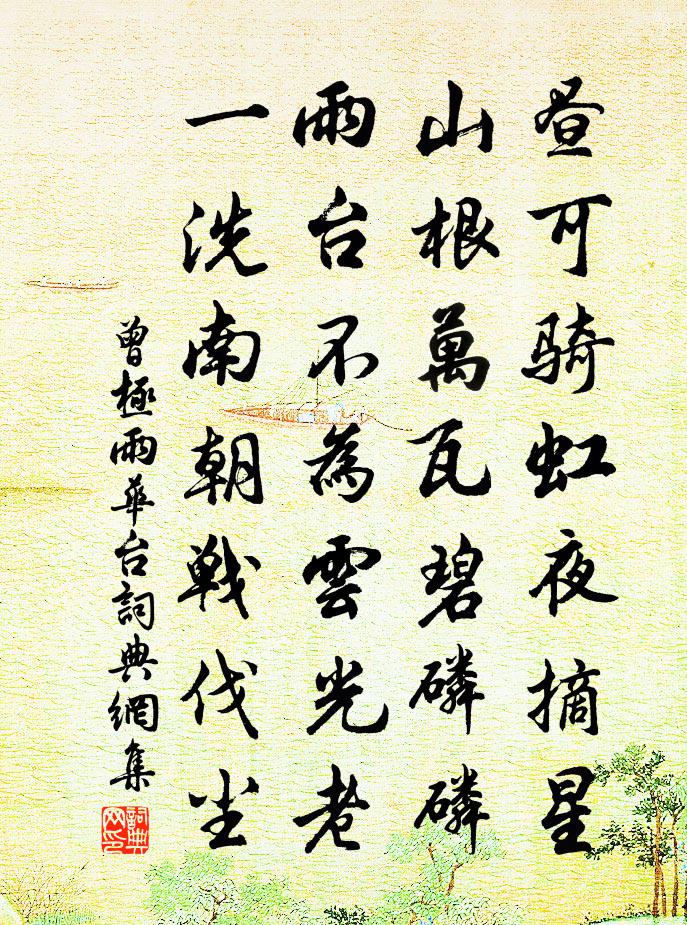 昼可骑虹夜摘星
山根萬瓦碧磷磷
雨台不為雲光老
一洗南朝戦伐尘
曾極雨華台詞典網集
詞典网印